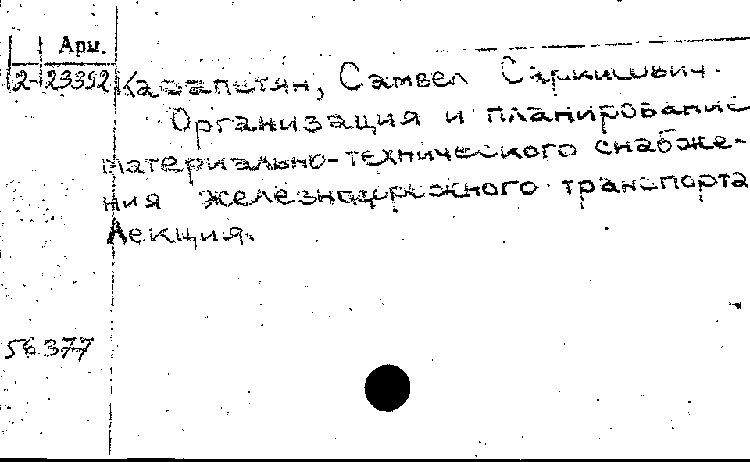 Арм.
2-23392
Карапетян, Самвел Саркисович.
Организация и планирование
материально-технического снабже-
ния железнодорожного транспорта
Лекция.
56377